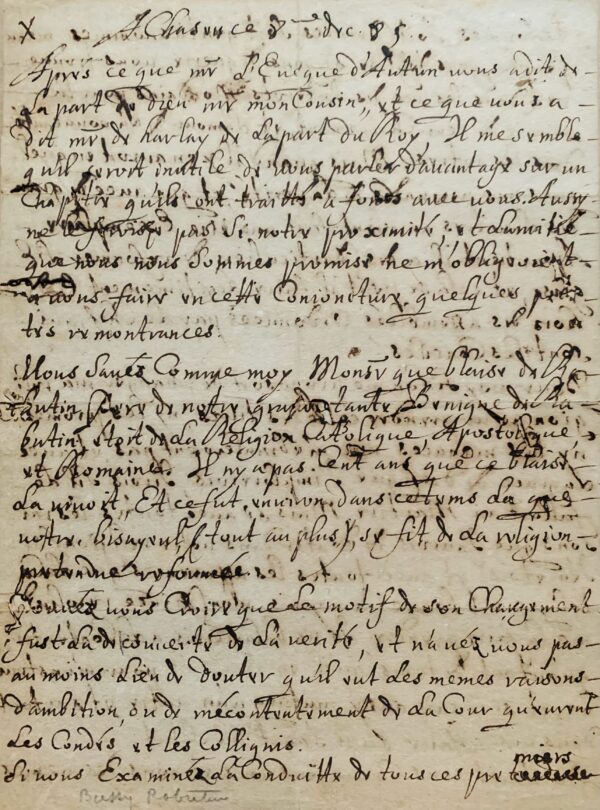 X A Chaseu ce 8.me dec. 85
Apres ce que mr L'Euesque d'Autun vous a dit de
la part de dieu mr mon Cousin, et ce que vous a
dit mr de harlay de la part du Roy Il me semble
qu'il seroit inutile de vous parler d'avantage sur un
Chapitre qu'ils ont traitté a fonds avec vous. Aussy
ne le ferois je pas si notre proximité et l'amitié
que nous nous sommes promise ne m'obligeoient
a vous faire en cette Conjoncture quelques
tes remontrances.
Vous sauez Comme moy Monsr que blaise de Ra-
butin frere de notre grandetante Benigne de Ra-
butin, etoit de la Religion Catholique, Apostolique,
et Romaine. Il n'y a pas Cent ans que ce blaise
la viuoit, Et ce fut enuiron dans ce tems la que
votre bisayeul (tout au plus) se fit de la religion
pretendue reformée.
Pouuez vous Croire que le motif de son Changement
fust la decouerte de la verité, et n'auez vous pas
au moins lieu de douter qu'il eut les mêmes raisons
d'ambition, ou de mécontentement de la Cour qu'eurent
les Condés et les Collignis.
Si vous Examinéz la Conduitte de tous ces premiers
Bussy Rabutin